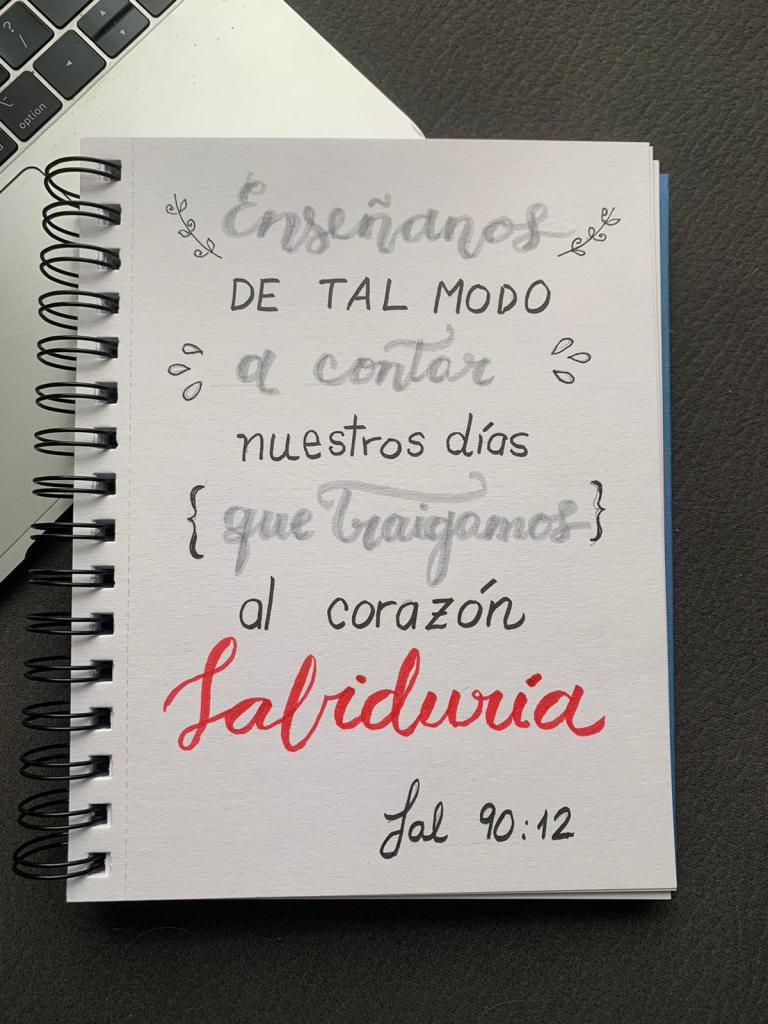 ?
/
option
Enseñanos
DE TAL MODO
a contar
nuestros días
{ que traigamos }
al corazón
Sabiduría
Sal 90:12